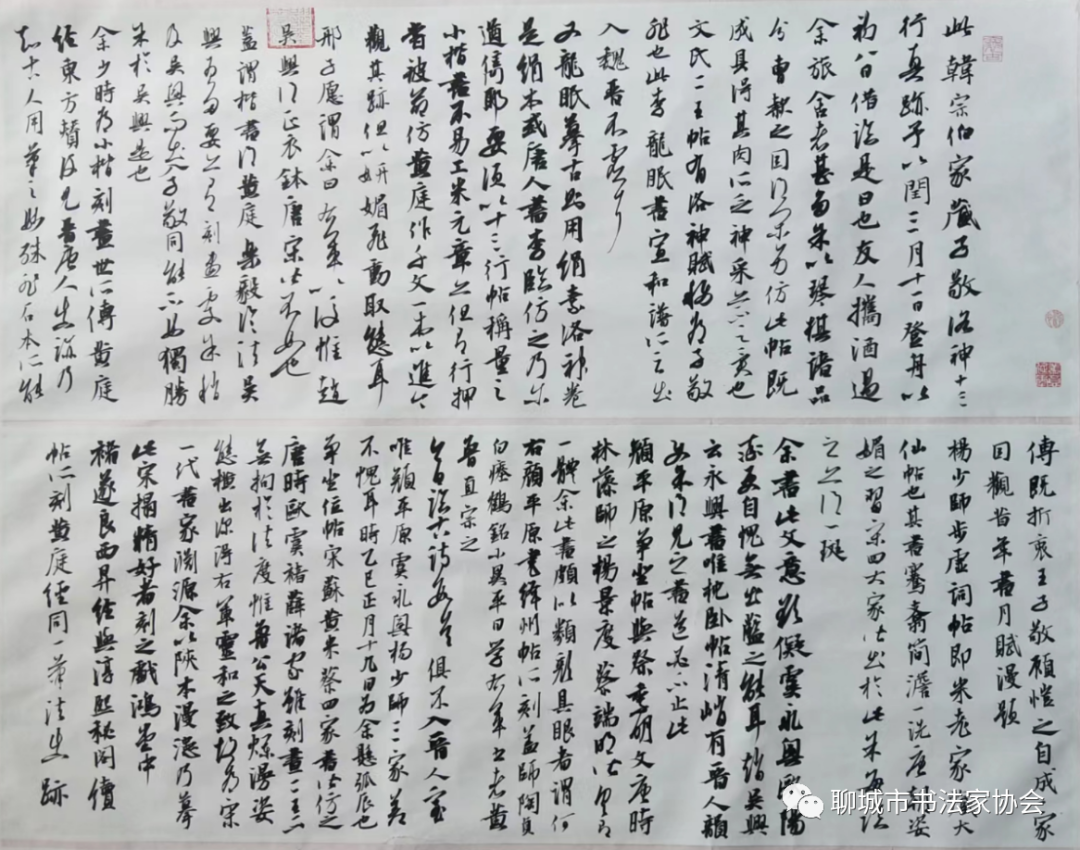 此韓宗伯家藏子敬洛神十三
行真跡予以閏三月十一日登舟以
初八日借臨是日也友人攜酒過
余旅舍者甚多余以琴棋諸品
分曹款之因得閑身仿此帖既
成具得其肉所乏神采亦不足異也
文氏二王帖有洛神賦稱為子敬
非也此李龍眠書宣和譜所云出
入魏晉不虛耳
又龍眠摹古則用絹素洛神卷
是絹本或唐人書李臨仿之乃爾
遒儁耶要須以十三行帖稱量之
小楷書不易工米元章亦但有行押
嘗被命仿黃庭作千文一本以進今
觀其跡但以妍媚飛動取態耳
邢子愿謂余曰右軍以後惟趙
吳興得正衣鉢唐宋皆不如也
蓋謂楷書得黃庭樂毅論法吳
興為多要亦有刻畫處余稍
及吳興而出入子敬同能不如獨勝
余於吳興是也
余少時為小楷刻畫世所傳黃庭
經東方贊後見晉唐人真跡乃
知古人用筆之妙殊非石本所能
傳既折衷王子敬顧愷之自成一家
因觀昔年書月賦漫題
楊少師步虛詞帖即米老家藏大
仙帖也其書騫翥簡澹一洗唐朝姿
媚之習宋四大家皆出於此余每臨
之亦得一斑
余書此文意欲擬虞永興歐陽
率更自愧無出藍之能耳趙吳興
云永興書唯枕卧帖清峭有晉人韻
如余所見之書道容不止此
顏平原爭坐帖與祭季明文唐時
林藻師之楊景度蔡端明皆
一脾余此書頗以類 具眼者謂何
右顏平原書絳州帖所刻蓋師陶貞
白瘞鶴銘小異平日學右軍書者黃
魯直宗之
今日臨古詩數首俱不入晉人室
唯顏平原虞永興楊少師三家差
不愧耳時乙巳正月十九日為余懸弧辰也
爭坐位帖宋蘇黃米蔡四家書皆仿之
唐時歐虞褚薛諸家雖刻畫二王不
無拘於法度惟魯公天真爛漫姿
態橫出深得右軍靈和之致故為宋
一代書家淵源余以陝本漫漶乃摹
此宋搨精好者刻之戲鴻堂中
褚遂良西昇經與淳熙秘閣續
帖所刻黃庭經同一筆法真跡
聊城市书法家协会